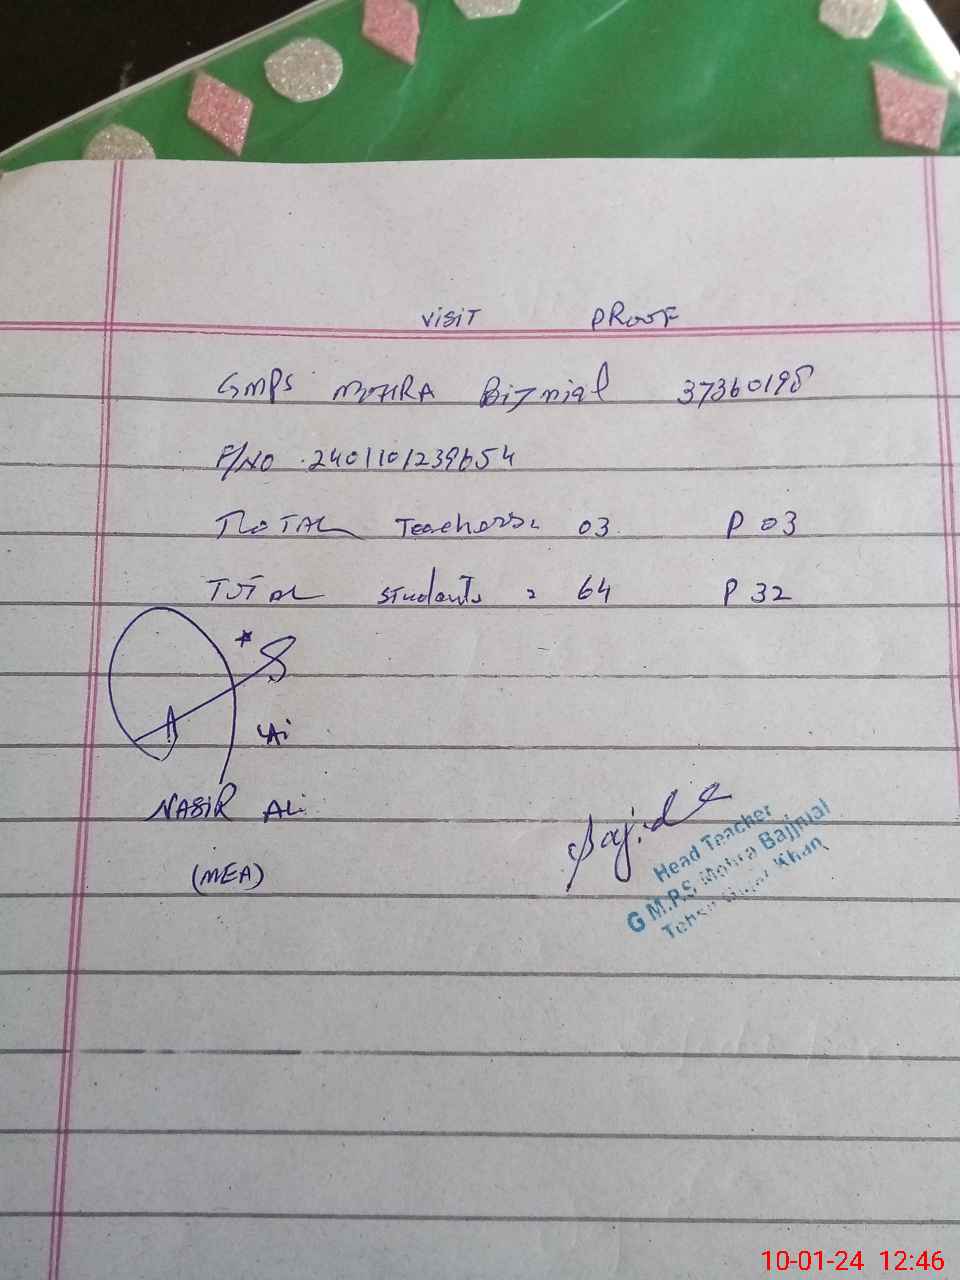 VISIT PROOF
GMPS MOHRA Bijnial 37360198
F/NO 2401101239654
TOTAL Teachers: 03 P 03
TOTAL students = 64 P 32
NASIR ALi
(MEA)
Sajid
Head Teacher
G M.P.S Mohra Bajjnial
Tehsil Gujar Khan
10-01-24 12:46